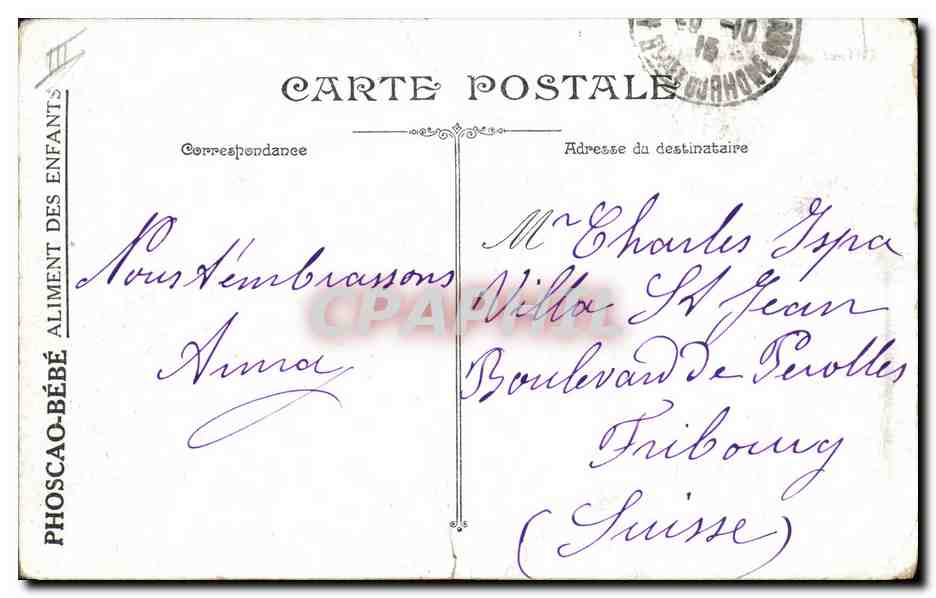 CARTE POSTALE
Correspondance
Adresse du destinataire
PHOSCAO-BÉBÉ ALIMENT DES ENFANTS
III
10
Nous t'embrassons
Anna
Mr Charles Ispa
Villa St Jean
Boulevard de Perolles
Fribourg
(Suisse)
CPAPHIL